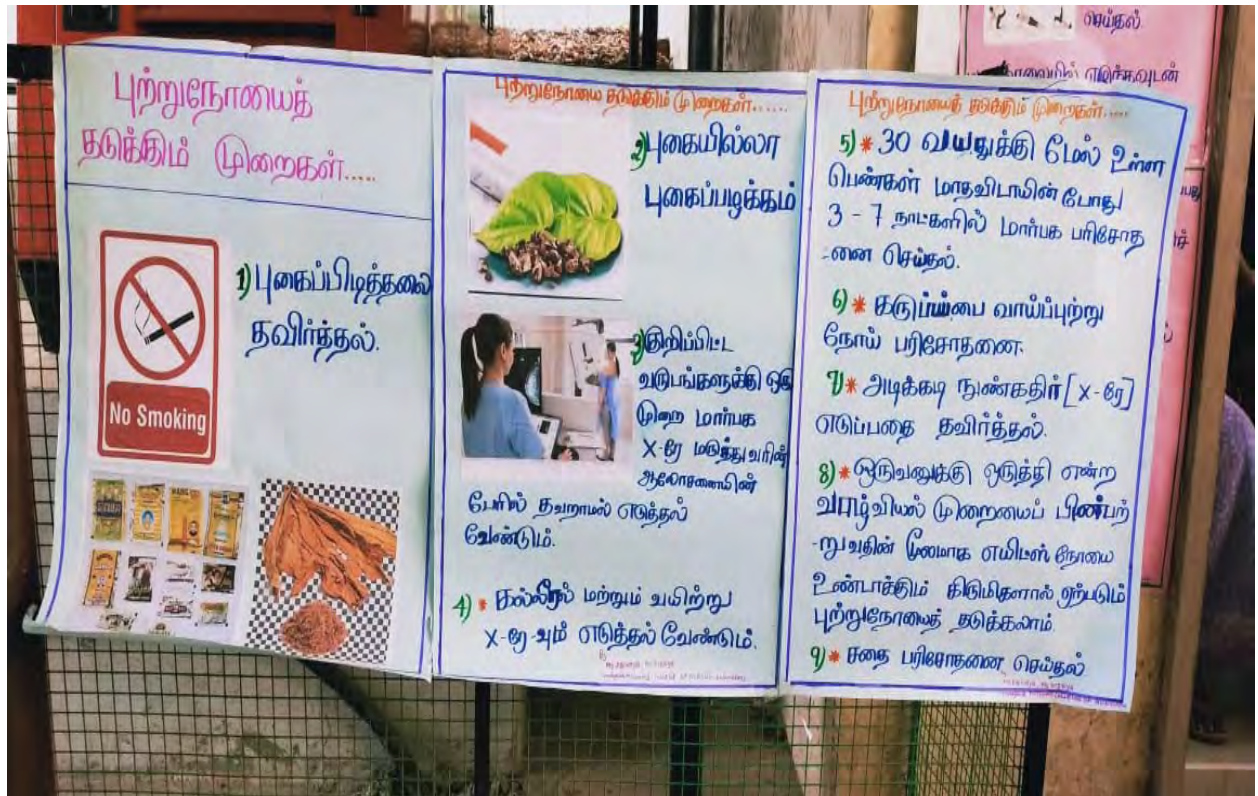 புற்றுநோயைத்
தடுக்கும் முறைகள்.....
1) புகைப்பிடித்தலை
தவிர்த்தல்.
No Smoking
புற்றுநோயை தடுக்கும் முறைகள்......
2) புகையில்லா
புகைப்படிக்கம்
3) குறிப்பிட்ட
வருபங்களுக்கு ஒரு
முறை மார்பக
X-ரே மருத்துவரின்
ஆலோசனையின்
பேரில் தவறாமல் எடுத்தல்
வேண்டும்.
4) * கல்லீரல் மற்றும் வயிற்று
X-ரே-வும் எடுத்தல் வேண்டும்.
புற்றுநோயைத் தடுக்கும் முறைகள்.....
5) * 30 வயதுக்கு மேல் உள்ள
பெண்கள் மாதவிடாயின் போது
3 - 7 நாட்களில் மார்பக பரிசோத
-னை செய்தல்.
6) * கருப்பை வாய்ப்புற்று
நோய் பரிசோதனை.
7) * அடிக்கடி நுண்கதிர் [X-ரே]
எடுப்பதை தவிர்த்தல்.
8) * ஒருவனுக்கு ஒருத்தி என்ற
வாழ்வியல் முறையைப் பின்பற்
-றுவதின் மூலமாக எயிட்ஸ் நோயை
உண்டாக்கும் கிருமிகளால் ஏற்படும்
புற்றுநோயைத் தடுக்கலாம்.
9) * சதை பரிசோதனை செய்தல்
செய்தல்.
எழுந்தவுடன்